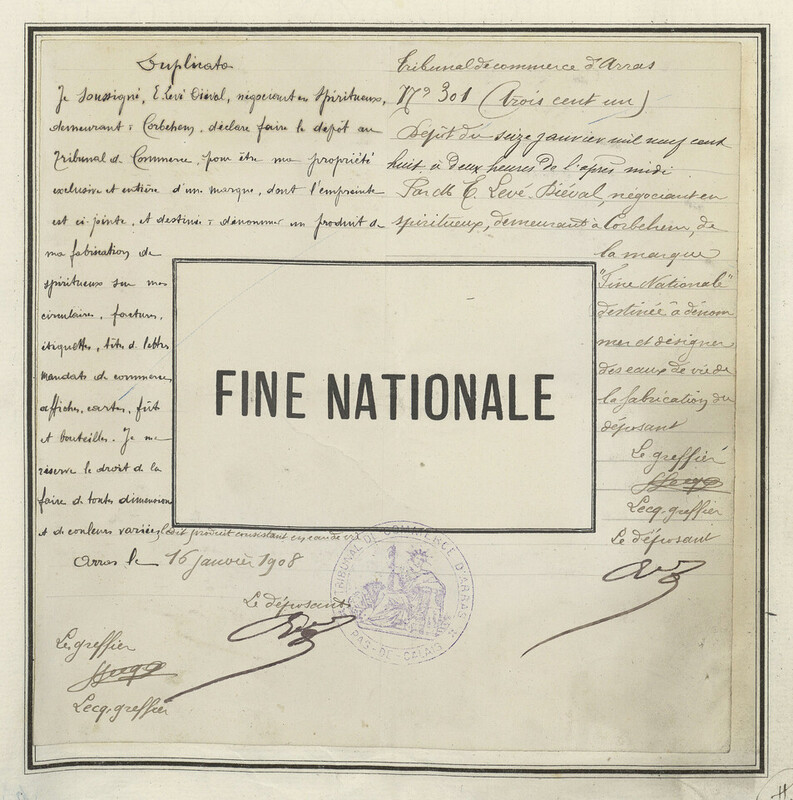 Duplicata
Je soussigné, E. Levé Diéval, négociant en spiritueux,
demeurant à Corbehem, déclare faire le dépôt au
Tribunal de Commerce, pour être ma propriété
exclusive et entière d'une marque, dont l'empreinte
est ci-jointe, et destinée à dénommer un produit de
ma fabrication de
spiritueux sur mes
circulaires, factures,
étiquettes, têtes de lettres
mandats de commerce,
affiches, cartes, fûts
et bouteilles. Je me
réserve le droit de la
faire de toutes dimensions
et de couleurs variées, ledit produit consistant en eau de vie
Arras le 16 janvier 1908
Le déposant
Le greffier
Lecq. greffier
Tribunal de commerce d'Arras
N° 301 (trois cent un)
Dépôt du seize janvier mil neuf cent
huit à deux heures de l'après midi
Par M E. Levé-Diéval, négociant en
spiritueux, demeurant à Corbehem, de
la marque
"Fine Nationale"
destinée à dénom
mer et désigner
des eaux de vie de
la fabrication du
déposant
Le greffier
Lecq. greffier
Le déposant
FINE NATIONALE
TRIBUNAL DE COMMERCE D'ARRAS
PAS-DE-CALAIS